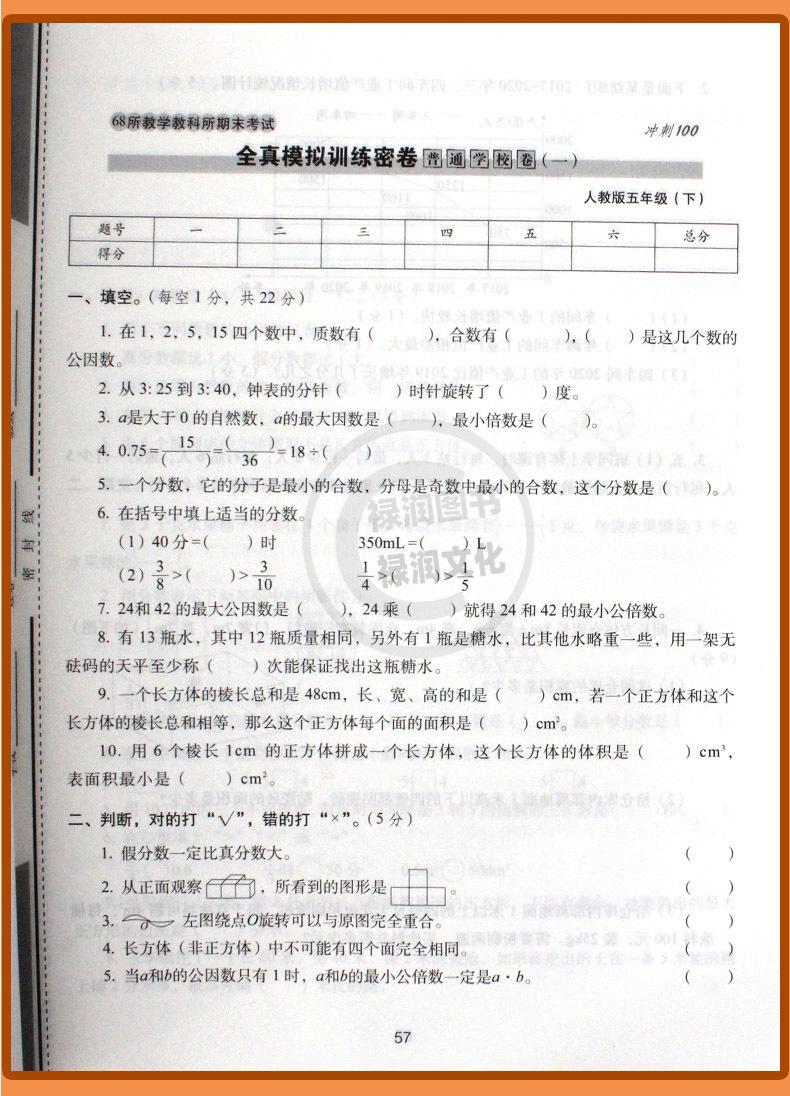 68所教学教科所期末考试
冲刺100
全真模拟训练密卷 普通学校卷(一)
人教版五年级(下)
题号 一 二 三 四 五 六 总分
得分
一、填空。(每空1分,共22分)
1. 在1,2,5,15四个数中,质数有( ),合数有( ),( )是这几个数的
公因数。
2. 从3:25到3:40,钟表的分针( )时针旋转了( )度。
3. a是大于0的自然数,a的最大因数是( ),最小倍数是( )。
4. 0.75=15/( )=( )/36=18÷( )
5. 一个分数,它的分子是最小的合数,分母是奇数中最小的合数,这个分数是( )。
6. 在括号中填上适当的分数。
(1)40分=( )时 350mL=( )L
(2)3/8>( )>3/10 1/4>( )>1/5
7. 24和42的最大公因数是( ),24乘( )就得24和42的最小公倍数。
8. 有13瓶水,其中12瓶质量相同,另外有1瓶是糖水,比其他水略重一些,用一架无
砝码的天平至少称( )次能保证找出这瓶糖水。
9. 一个长方体的棱长总和是48cm,长、宽、高的和是( )cm,若一个正方体和这个
长方体的棱长总和相等,那么这个正方体每个面的面积是( )cm²。
10. 用6个棱长1cm的正方体拼成一个长方体,这个长方体的体积是( )cm³,
表面积最小是( )cm²。
二、判断,对的打“√”,错的打“×”。(5分)
1. 假分数一定比真分数大。 ( )
2. 从正面观察,所看到的图形是。 ( )
3. O 左图绕点O旋转可以与原图完全重合。 ( )
4. 长方体(非正方体)中不可能有四个面完全相同。 ( )
5. 当a和b的公因数只有1时,a和b的最小公倍数一定是a·b。 ( )
57
密封线
禄润图书
禄润文化